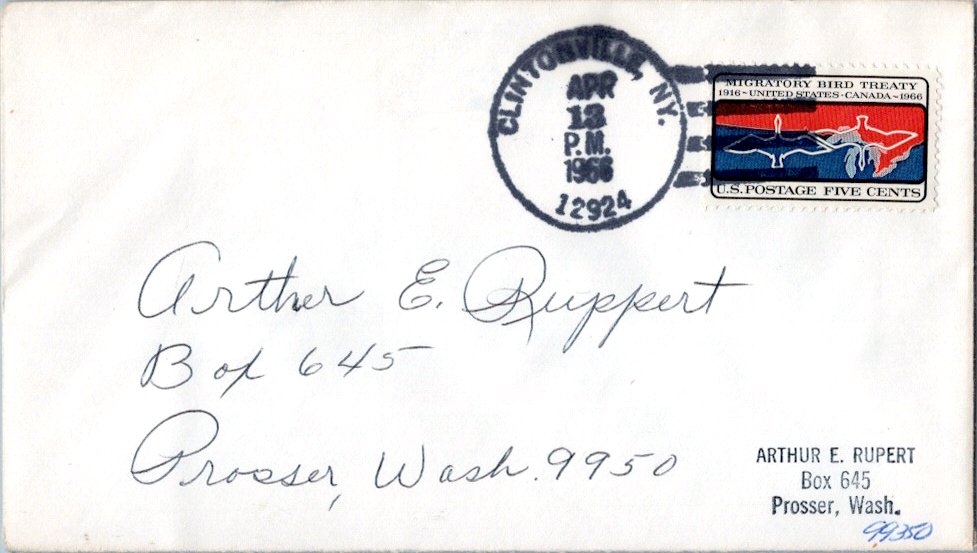 CLINTONVILLE, NY.
APR
13
P.M.
1966
12924
MIGRATORY BIRD TREATY
1916 ~ UNITED STATES · CANADA ~ 1966
U.S. POSTAGE FIVE CENTS
Arther E. Ruppert
Box 645
Prosser, Wash. 9950
ARTHUR E. RUPERT
Box 645
Prosser, Wash.
99350